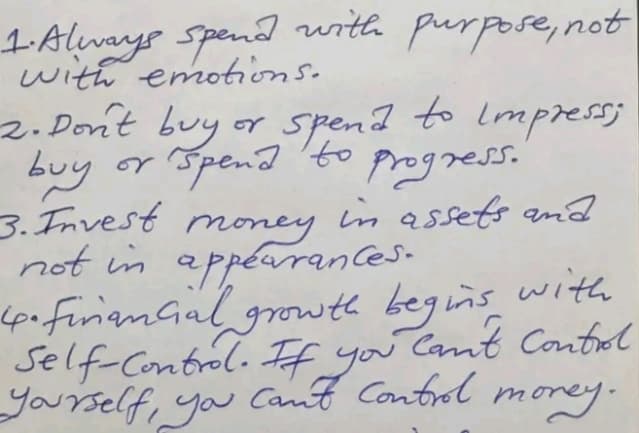 1. Always spend with purpose, not
with emotions.
2. Don't buy or spend to impress;
buy or spend to progress.
3. Invest money in assets and
not in appearances.
4. Financial growth begins with
Self-Control. If you can't Control
yourself, you can't Control money.